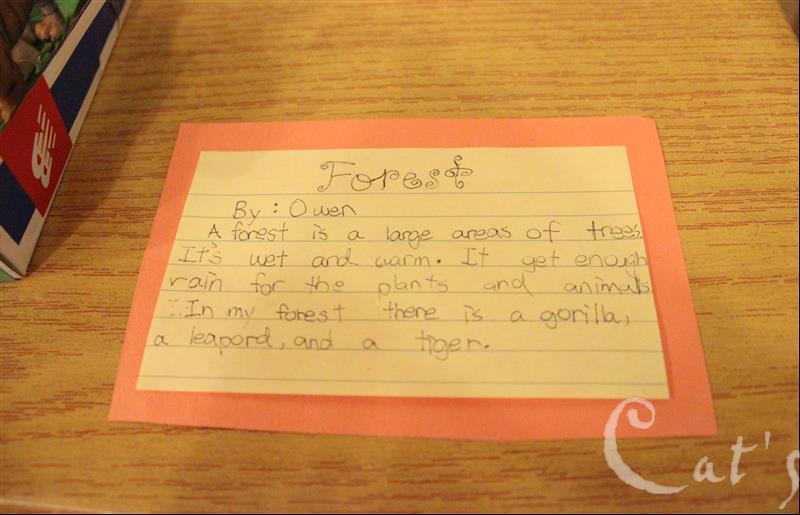 Forest
By: Owen
A forest is a large areas of trees.
It's wet and warm. It get enough
rain for the plants and animals
In my forest there is a gorilla,
a leapord, and a tiger.
Cat's